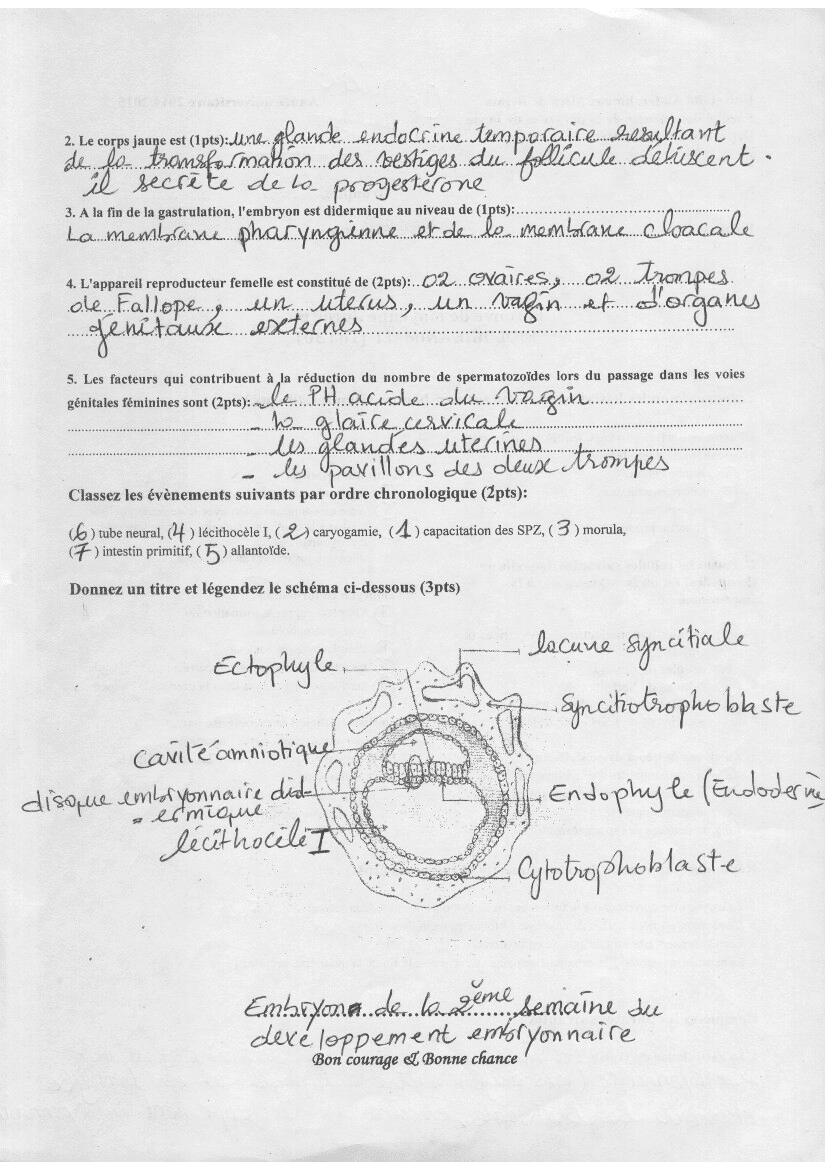 2. Le corps jaune est (1pts): une glande endocrine temporaire resultant
de la transformation des vestiges du follicule déhiscent.
il secrète de la progesterone
3. A la fin de la gastrulation, l'embryon est didermique au niveau de (1pts):
La membrane pharyngienne et de la membrane cloacale
4. L'appareil reproducteur femelle est constitué de (2pts): 02 ovaires, 02 trompes
de Fallope, un uterus, un vagin et d'organes
génitaux externes
5. Les facteurs qui contribuent à la réduction du nombre de spermatozoïdes lors du passage dans les voies
génitales féminines sont (2pts): - le PH acide du vagin
- la glaire cervicale
- les glandes uterines
- les pavillons des deux trompes
Classez les évènements suivants par ordre chronologique (2pts):
(6) tube neural, (4) lécithocèle I, (2) caryogamie, (1) capacitation des SPZ, (3) morula,
(7) intestin primitif, (5) allantoïde.
Donnez un titre et légendez le schéma ci-dessous (3pts)
lacune syncitiale
Ectophyle
Syncitiotrophoblaste
Cavité amniotique
disque embryonnaire did-
= ermique
Endophyle (Endoderme
lécithocèle I
Cytotrophoblaste
Embryon de la 2ème semaine du
developpement embryonnaire
Bon courage & Bonne chance